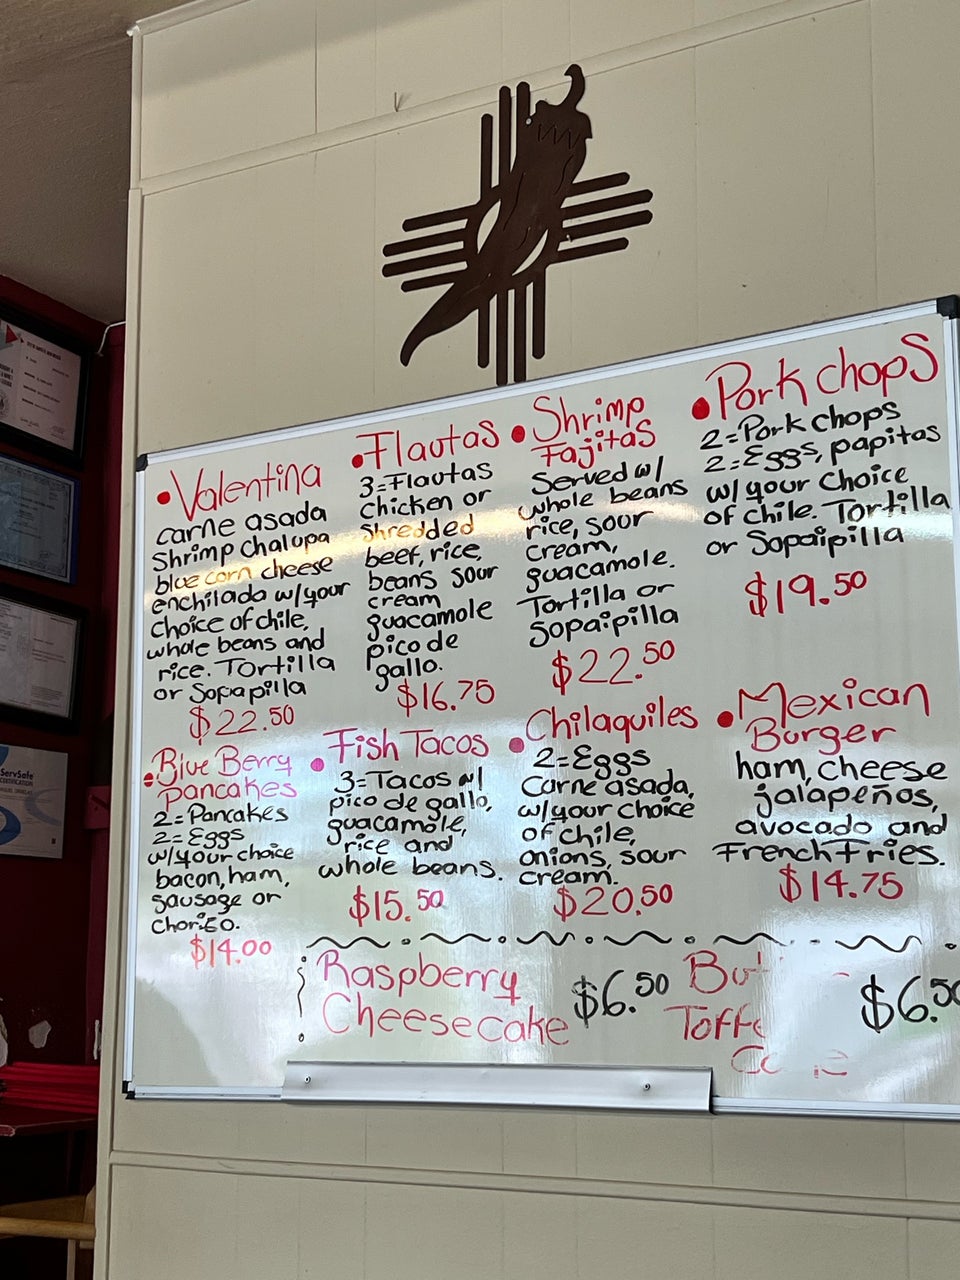 •Valentina
carne asada
Shrimp Chalupa
blue corn cheese
enchilada w/your
choice of chile,
whole beans and
rice. Tortilla
or Sopapilla
$22.50
•Flautas
3=Flautas
chicken or
shredded
beef, rice,
beans sour
cream
guacamole
pico de
gallo.
$16.75
•Shrimp
Fajitas
Served w/
whole beans
rice, sour
cream,
guacamole.
Tortilla or
Sopaipilla
$22.50
•Pork chops
2=Pork chops
2=Eggs, papitas
w/your choice
of chile. Tortilla
or Sopaipilla
$19.50
•Blue Berry
pancakes
2=Pancakes
2=Eggs
w/your choice
bacon, ham,
sausage or
chorizo.
$14.00
•Fish Tacos
3=Tacos w/
pico de gallo,
guacamole,
rice and
whole beans.
$15.50
•Chilaquiles
2=Eggs
Carne asada,
w/your choice
of chile,
onions, sour
cream.
$20.50
•Mexican
Burger
ham, cheese
jalapeños,
avocado and
French Fries.
$14.75
Raspberry
Cheesecake
$6.50
$6.50
ServSafe